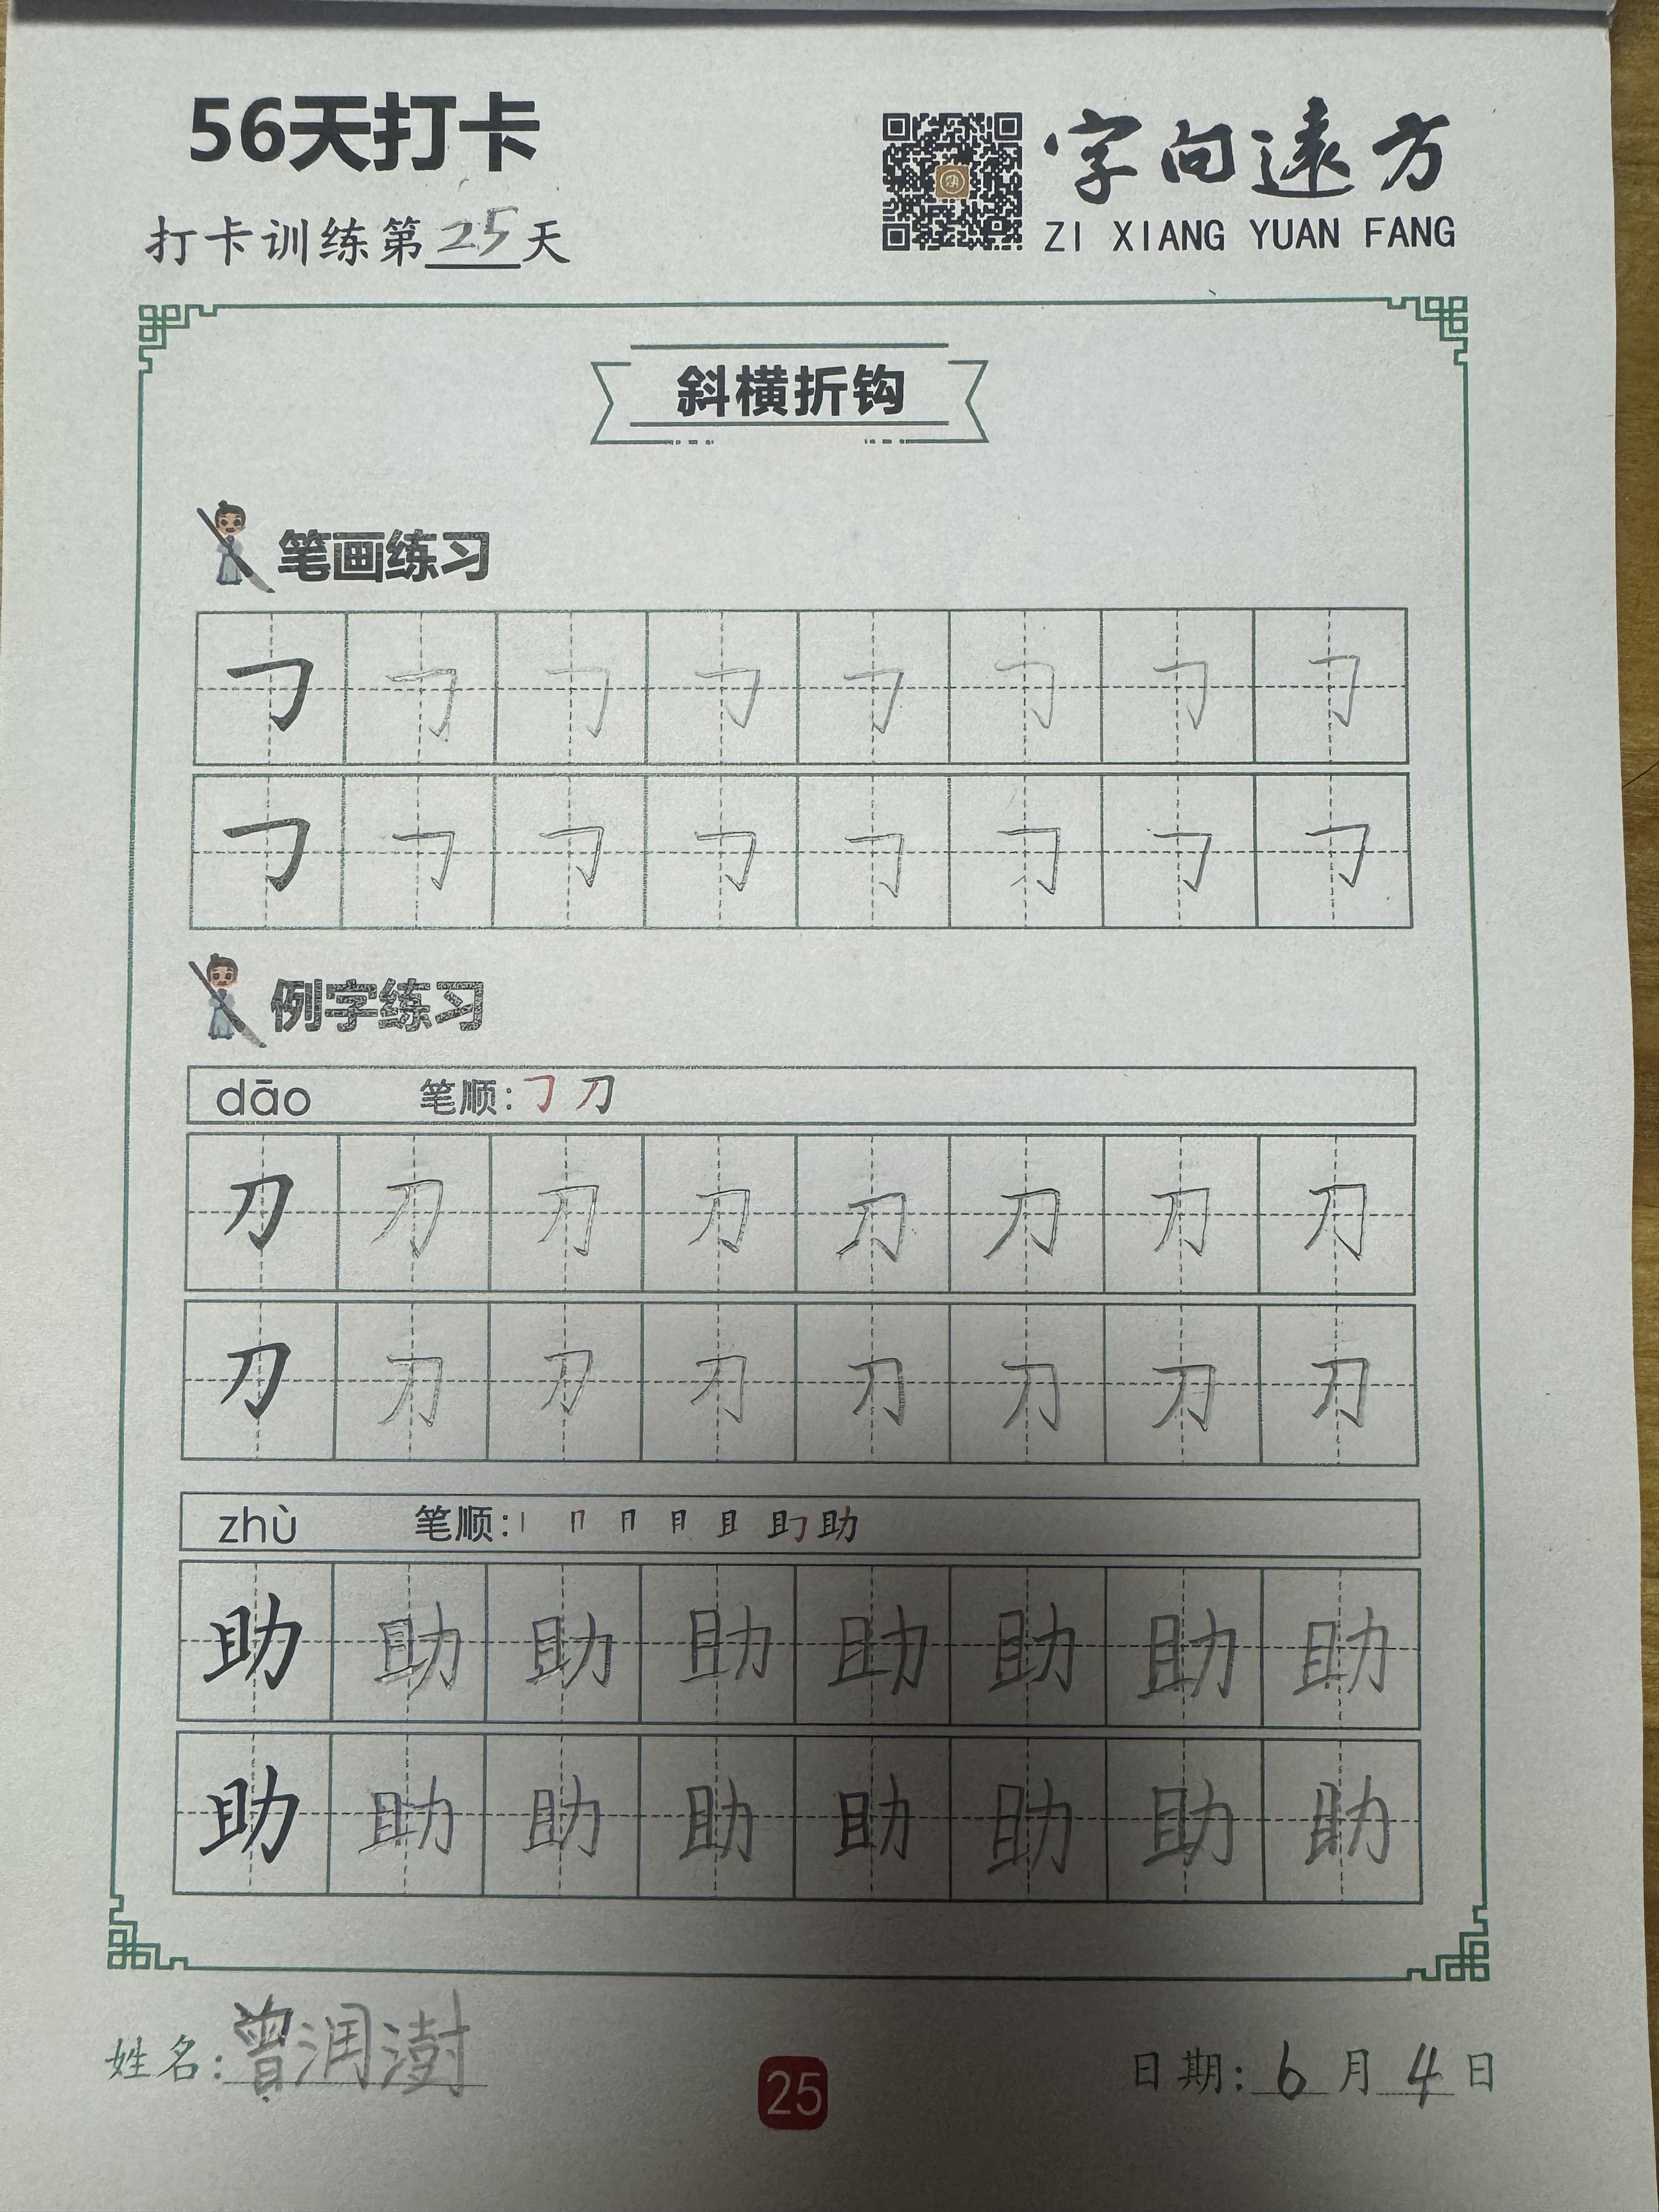 56天打卡
字向遠方
ZI XIANG YUAN FANG
打卡训练第25天
斜横折钩
笔画练习
𠃌 𠃌 𠃌 𠃌 𠃌 𠃌 𠃌 𠃌
𠃌 𠃌 𠃌 𠃌 𠃌 𠃌 𠃌 𠃌
例字练习
dāo 笔顺: 𠃌 刀
刀 刀 刀 刀 刀 刀 刀 刀
刀 刀 刀 刀 刀 刀 刀 刀
zhù 笔顺: 丨 冂 助
助 助 助 助 助 助 助 助
助 助 助 助 助 助 助 助
姓名: 曾润澍
25
日期: 6月4日